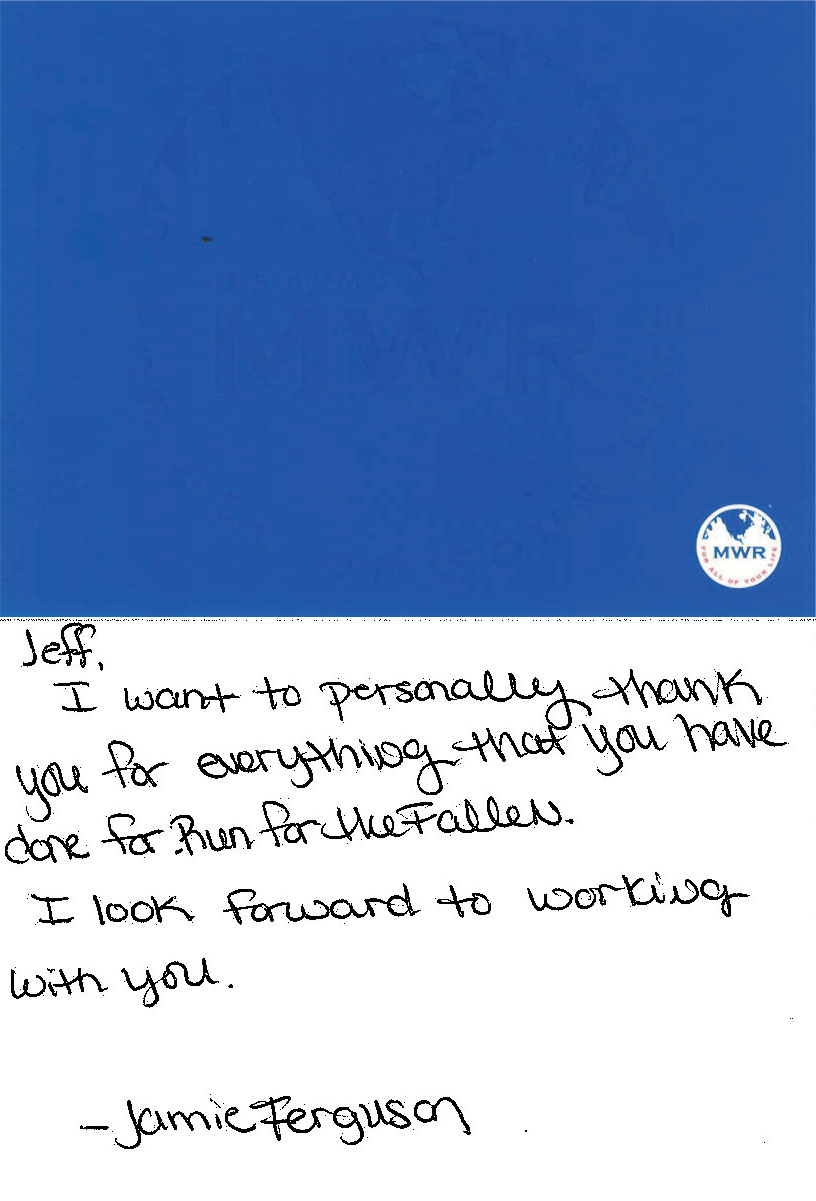 U.S. ARMY
MWR
FOR ALL OF YOUR LIFE
MWR
FOR ALL OF YOUR LIFE
Jeff,
I want to personally thank
you for everything that you have
done for Run for the Fallen.
I look forward to working
with you.
- Jamie Ferguson